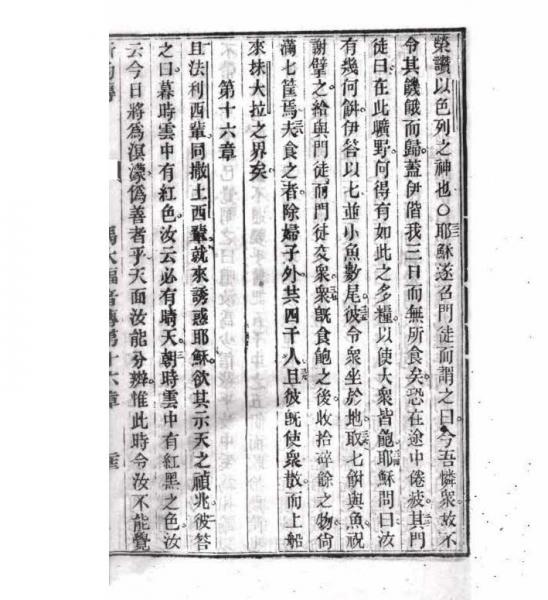 榮讚以色列之神也○耶穌遂召門徒而謂之曰今吾憐衆故不
令其饑餓而歸蓋伊偕我三日而無所食矣恐在途中倦疲其門
徒曰在此曠野何得有如此之多糧以使大衆皆飽耶穌問曰汝
有幾何餅伊答以七並小魚數尾彼令衆坐於地取七餅與魚祝
謝擘之給與門徒而門徒交衆衆旣食飽之後收拾碎餘之物尙
滿七筐焉夫食之者除婦子外共四千人且彼旣使衆散而上船
來抹大拉之界矣
第十六章
且法利西輩同撒土西輩就來誘惑耶穌欲其示天之禎兆彼答
之曰暮時雲中有紅色汝云必有晴天朝時雲中有紅黑之色汝
云今日將爲溟濛僞善者乎天面汝能分辨惟此時令汝不能覺
馬太福音傳第十六章